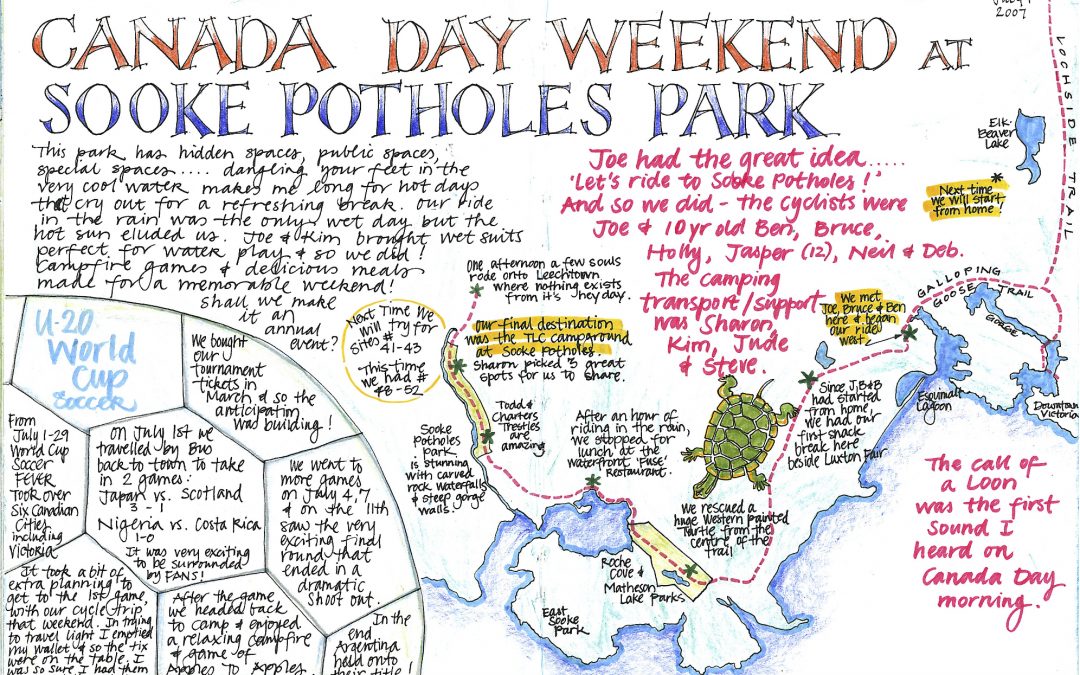 July 1
2007
CANADA DAY WEEKEND AT
SOOKE POTHOLES PARK
This park has hidden spaces, public spaces,
special spaces..... dangling your feet in the
very cool water makes me long for hot days
that cry out for a refreshing break. our ride
in the rain was the only wet day but the
hot sun eluded us. Joe & Kim brought wet suits
perfect for water play & so we did!
Campfire games & delicious meals
made for a memorable weekend!
shall we make
it an
annual
event?
Joe had the great idea.....
'Let's ride to Sooke Potholes!'
And so we did - the cyclists were
Joe & 10 yr old Ben, Bruce,
Holly, Jasper (12), Neil & Deb.
The camping
transport/support
was Sharon,
Kim, Jude
& Steve.
LOCHSIDE TRAIL
Elk-
Beaver
Lake
*
Next time
we will start
from home!
One afternoon a few souls
rode onto Leechtown
where nothing exists
from it's heyday.
Next Time We
will try for
sites #
41-43
This time
we had #
48-52
our final destination
was the TLC campground
at Sooke Potholes.
Sharon picked 3 great
spots for us to share.
Todd &
Charters
Trestles
are
amazing
Sooke
Potholes
park
is stunning
with carved
rock waterfalls
& steep gorge
walls.
After an hour of
riding in the rain,
we stopped for
lunch at the
waterfront 'Fuse'
Restaurant.
We rescued a
huge Western painted
Turtle from the
centre of the
trail
Roche
Cove &
Matheson
Lake Parks
East
Sooke
Park
We met
Joe, Bruce & Ben
here & began
our ride
west.
GALLOPING
GOOSE TRAIL
GORGE
Since J, B & B
had started
from home,
we had our
first snack
break here
beside Luxton Fair
Esquimalt
Lagoon
Downtown
Victoria
The call of
a Loon
was the first
sound I
heard on
Canada Day
morning.
U-20
World
Cup
Soccer
We bought
our
tournament
tickets in
March & so the
anticipation
was building!
From
July 1-29
World Cup
Soccer
FEVER
Took over
Six Canadian
Cities
including
Victoria
On July 1st we
travelled by Bus
back to town to take
in 2 games:
Japan vs. Scotland
3 - 1
Nigeria vs. Costa Rica
1-0
It was very exciting
to be surrounded
by FANS!
We went to
more games
on July 4, 7
& on the 11th
saw the very
exciting final
round that
ended in a
dramatic
Shoot out.
It took a bit of
extra planning to
get to the 1st game,
with our cycle trip
that weekend. In trying
to travel light I emptied
my wallet & so the tix
were on the table. I
was so sure I had them
After the game
we headed back
to camp & enjoyed
a relaxing campfire
& game of
Apples to Apples.
In the
end
Argentina
held onto
their title!